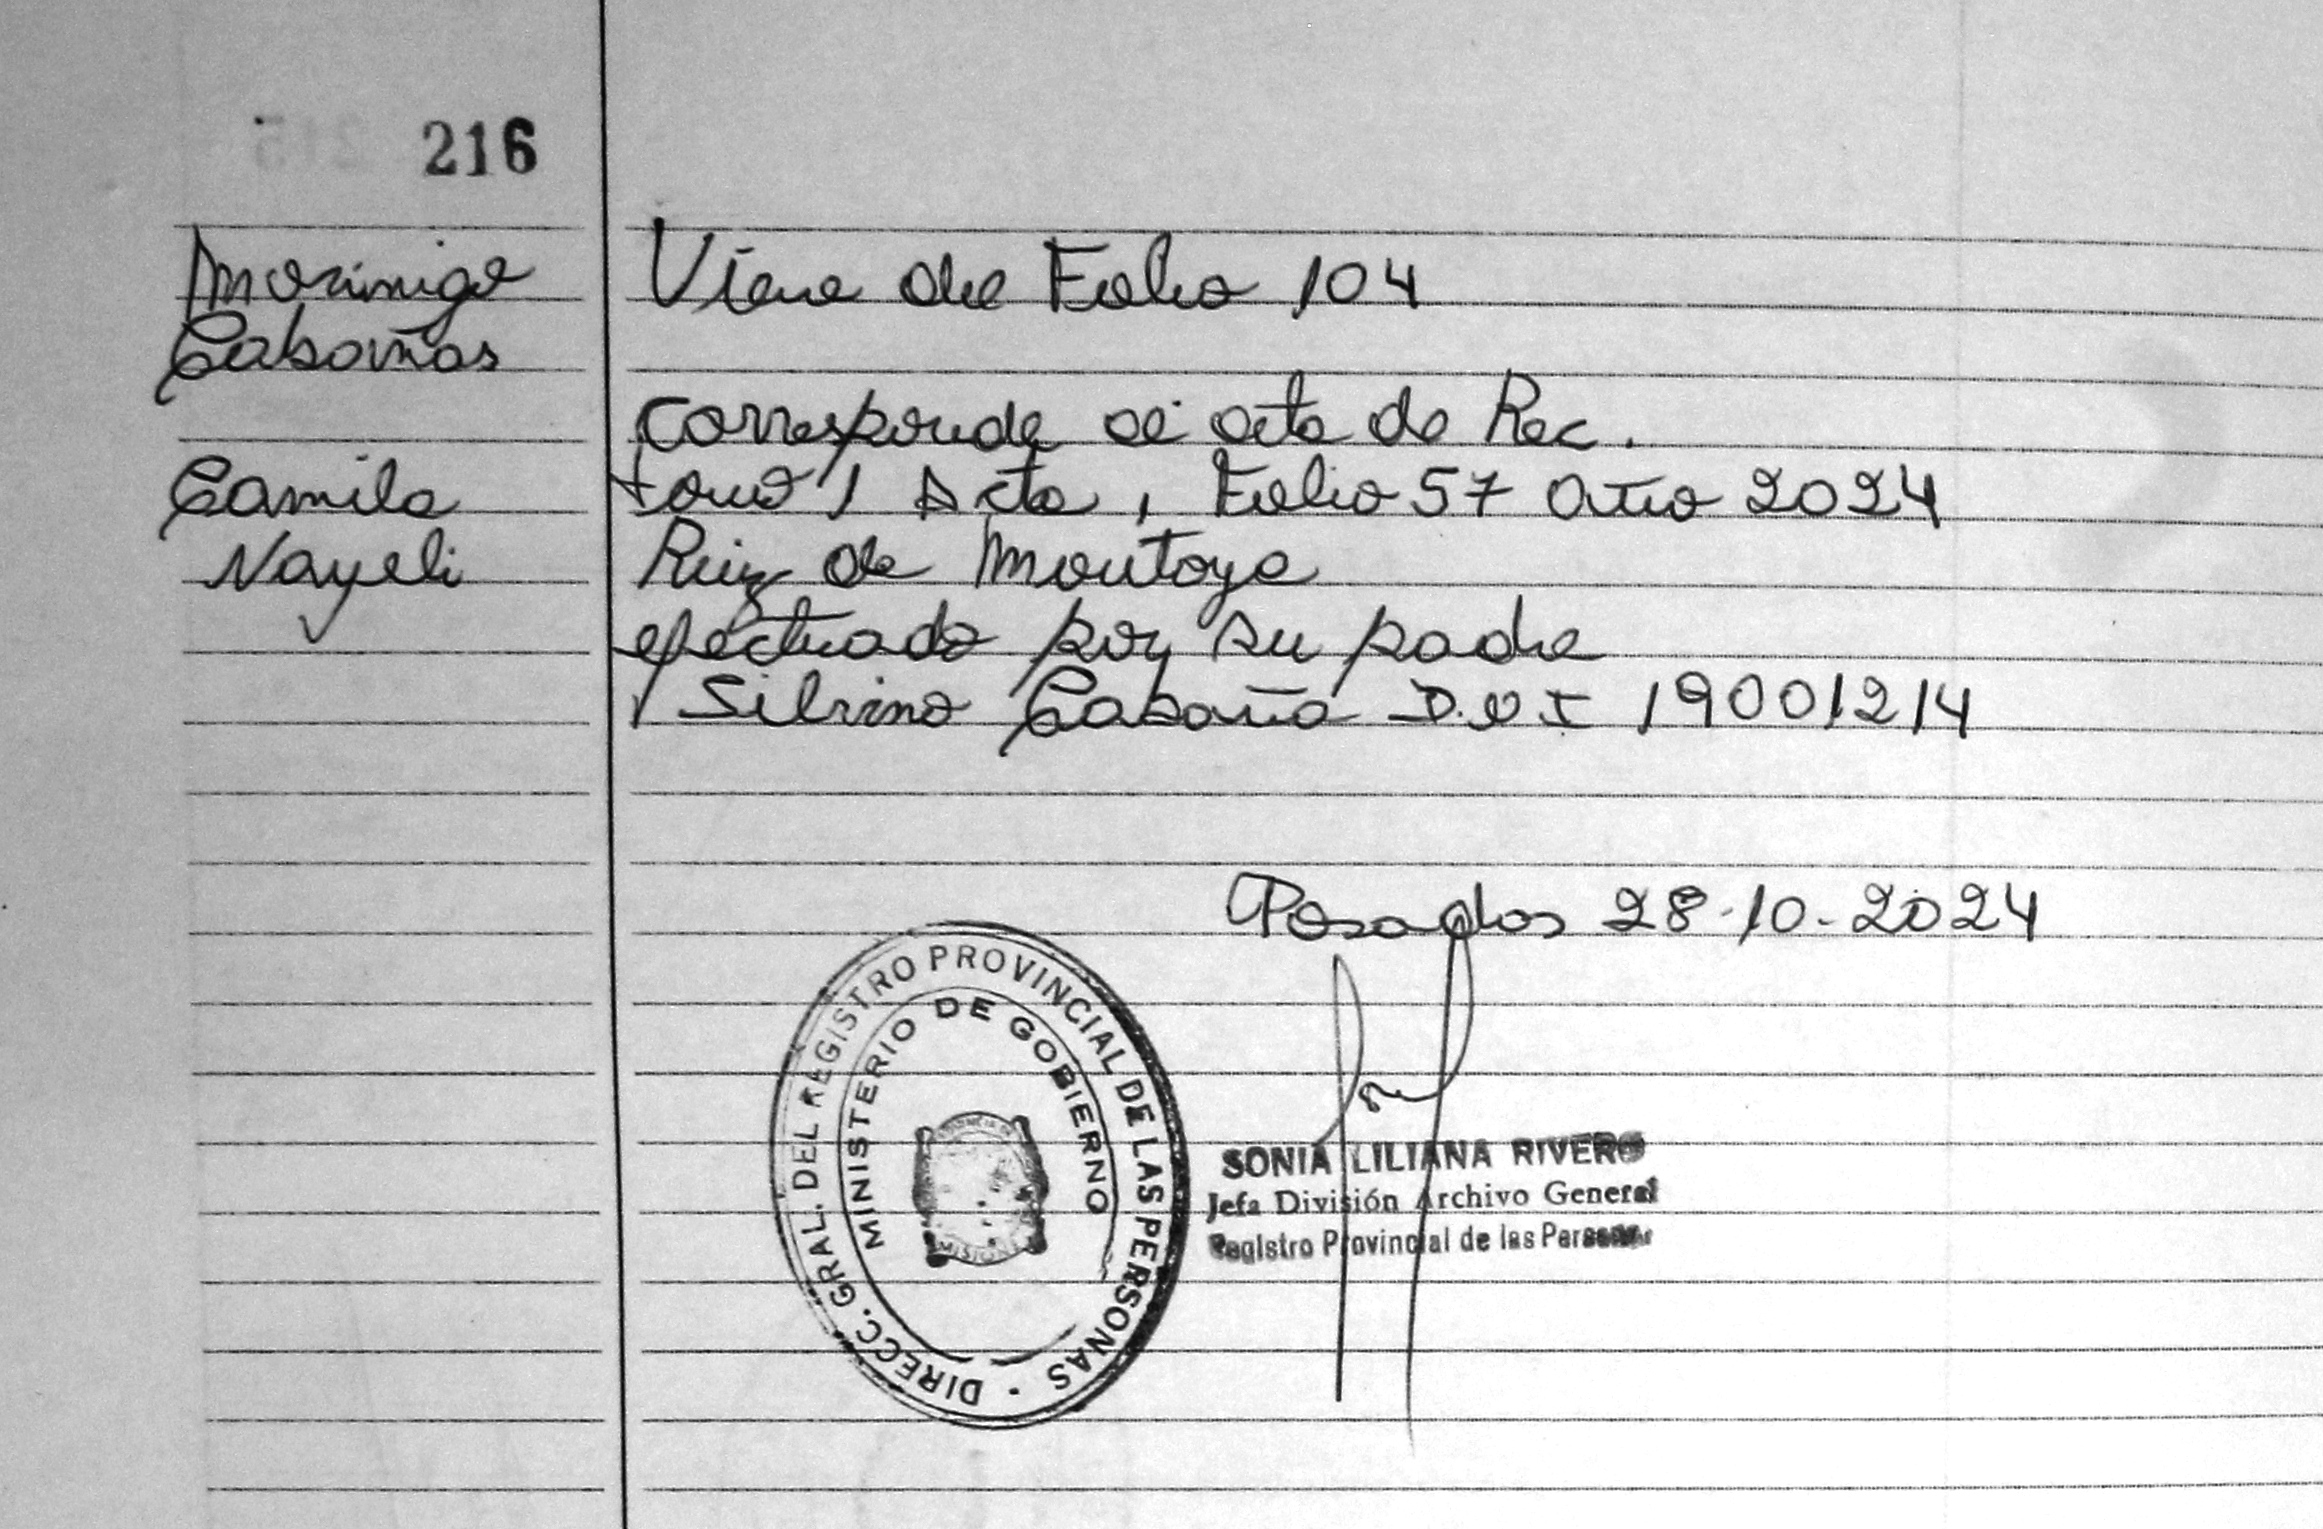 216
Morinigo
Cabañas
Camila
Nayeli
Viene de Folio 104
corresponde al acta de Rec.
tomo 1 Acta , Folio 57 Año 2024
Ruiz de Montoya
efectuado por su padre
Silvino Cabaña D.N I 19001214
Posadas 28-10-2024
DIRECC. GRAL. DEL REGISTRO PROVINCIAL DE LAS PERSONAS
MINISTERIO DE GOBIERNO
MISIONES
SONIA LILIANA RIVERO
Jefa División Archivo General
Registro Provincial de las Personas